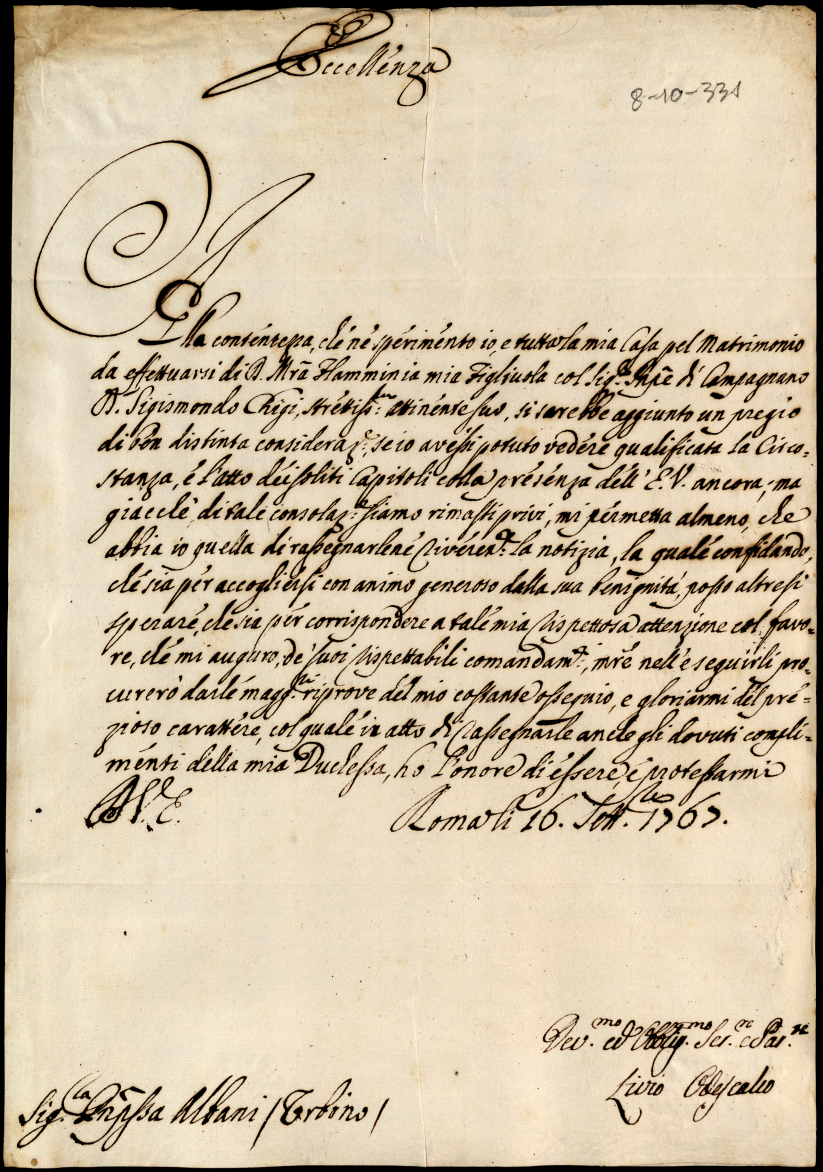 Eccellénza
8-10-331
Alla conténtezza, ché né spérimento io, e tutta la mia Casa pel Matrimonio
da effettuarsi di D. Mrã Flamminia mia Figliuola col Sig.r Prnpe di Campagnano
D. Sigismondo Chigi, stréttiss.mo attinénte suo, si sarebbe aggiunto un pregio
di bén distinta consideraz.e, se io avéssi potuto vedére qualificata la Circo-
stanza, é l'atto déi soliti Capitoli colla présénza déll'E.V. ancora; ma
giacché di tale consolaz.e siamo rimasti privi, mi pérmetta almeno, che
abbia io quella di rassegnarlené rivéren.te la notizia, la qualé confidando,
ché sia pér accogliérsi con animo generoso dalla sua bénignità, posso altresi
spérare, ché sia pér corrispondere a talé mia rispettosa attenzione col favo-
re, ché mi auguro, dé suoi rispettabili comandam.ti, mr̃e nell'eseguirli pro-
curerò darlé magg.ri riprove dél mio costante osséquio, e gloriarmi dél pré-
zioso carattére, col qualé in atto di rassegnarle anche gli dovuti compli-
ménti della mia Duchessa, hò l'onore di éssere, é protestarmi
Di V.E.
Roma li 16. Sett.bre 1767.
Dev.mo ed Obblig.mo Ser.re e Par.te
Livio Odescalco
Sig.ra Prnpssa Albani / Urbino /